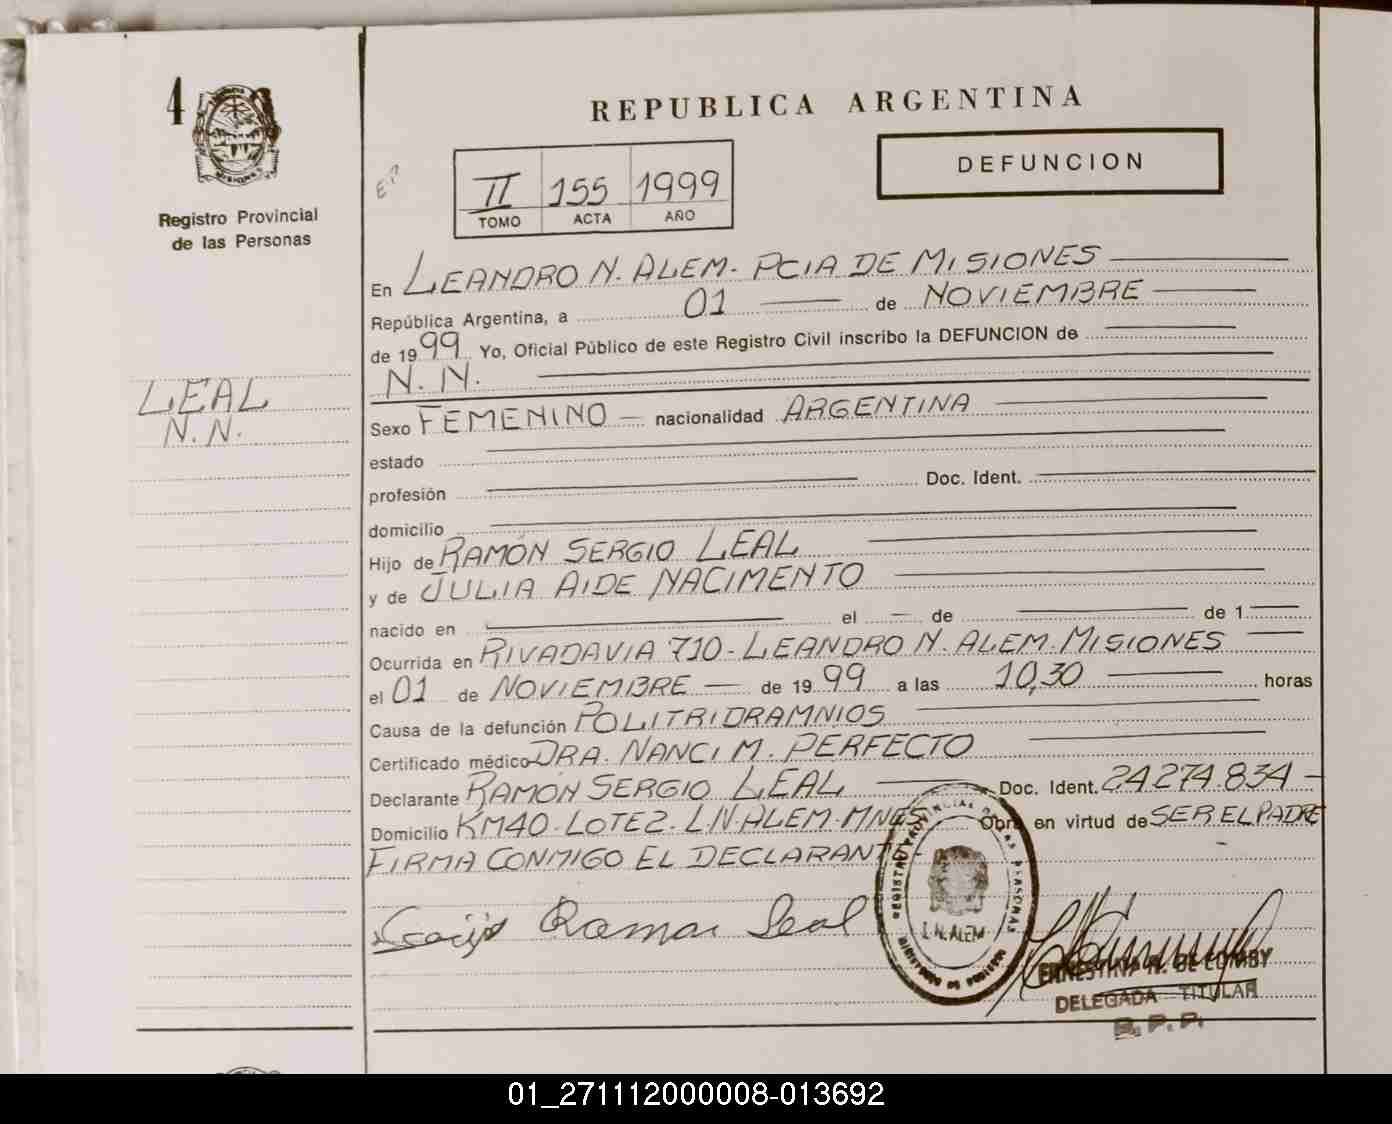 4
Registro Provincial
de las Personas
LEAL
N.N.
REPUBLICA ARGENTINA
II 155 1999
TOMO ACTA AÑO
DEFUNCION
En LEANDRO N. ALEM- PCIA DE MISIONES
República Argentina, a 01 de NOVIEMBRE
de 1999 Yo, Oficial Público de este Registro Civil inscribo la DEFUNCION de
N. N.
Sexo FEMENINO nacionalidad ARGENTINA
estado
profesión Doc. Ident.
domicilio
Hijo de RAMÓN SERGIO LEAL
y de JULIA AIDE NACIMENTO
nacido en el de de 1
Ocurrida en RIVADAVIA 710- LEANDRO N. ALEM. MISIONES
el 01 de NOVIEMBRE de 1999 a las 10,30 horas
Causa de la defunción POLITRIDRAMNIOS
Certificado médico DRA. NANCI M. PERFECTO
Declarante RAMÓN SERGIO LEAL Doc. Ident. 24.274.834
Domicilio KM40-LOTE2-LN.ALEM-MNES Obra en virtud de SER EL PADRE
FIRMA CONMIGO EL DECLARANTE
Ramon Leal
REGISTRO PROVINCIAL DE LAS PERSONAS
L.N.ALEM
ERNESTINA R. DE
DELEGADA TITULAR
R. P. P.
01_271112000008-013692